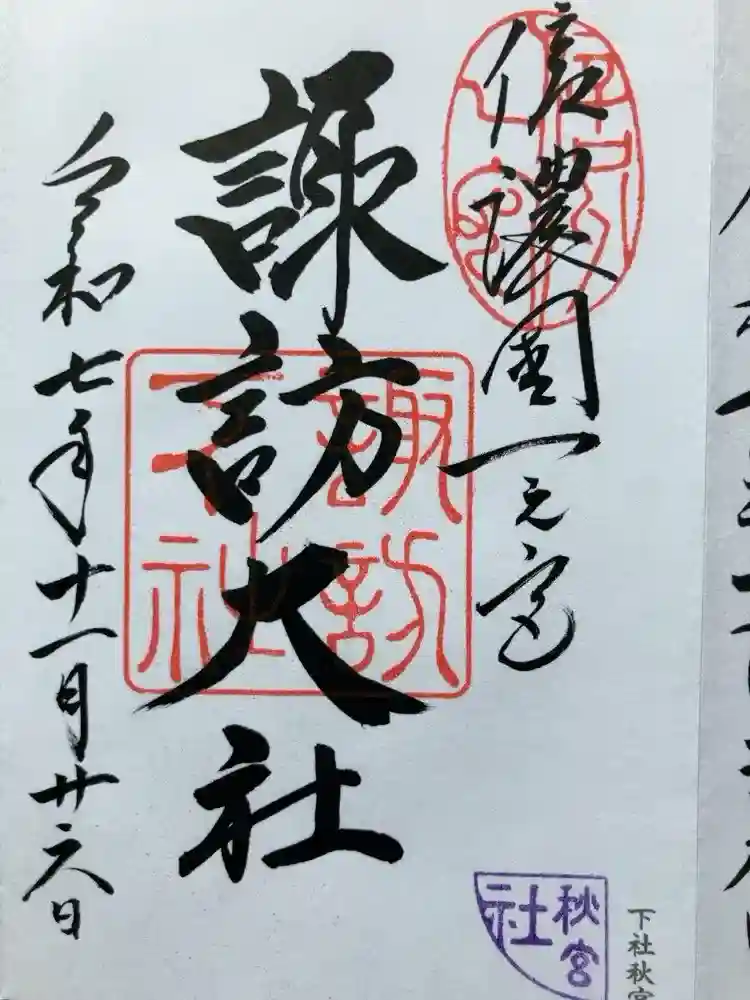 信濃國一之宮
諏訪大社
諏訪
下社
令和七年十一月廿六日
秋宮
社
下社秋宮